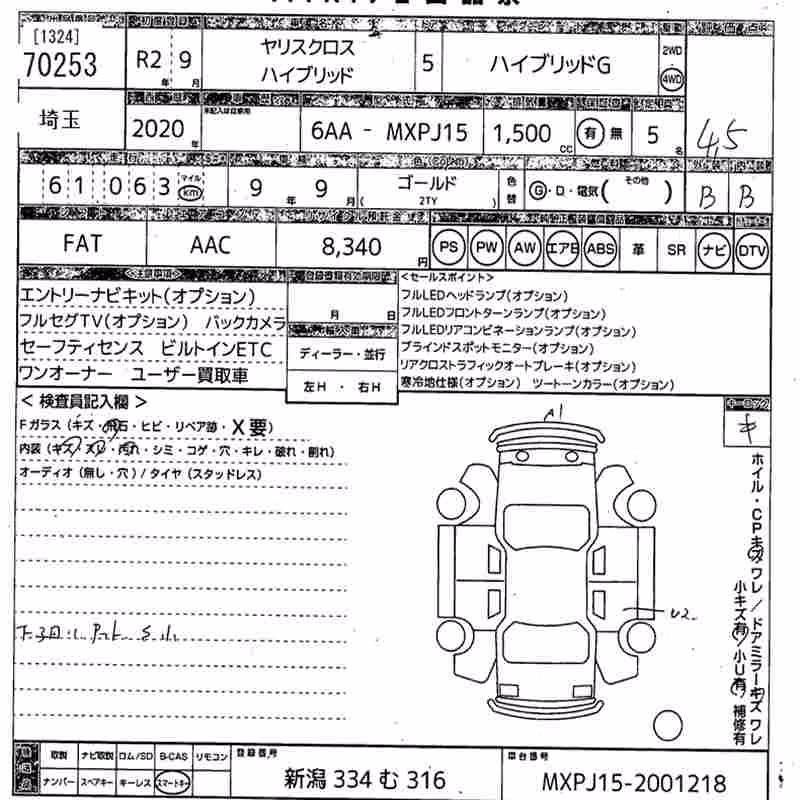 [1324]
70253
R2 9
年 月
ヤリスクロス
ハイブリッド
5
ハイブリッドG
2WD
4WD
埼玉
2020 年
6AA - MXPJ15
1,500 CC
有 無
5 名
4.5
61063
マイル
km
9 年 9 月
ゴールド
( 2TY )
色替
G・D・電気( その他 )
B B
FAT
AAC
8,340 円
PS PW AW エアB ABS 革 SR ナビ DTV
エントリーナビキット(オプション)
フルセグTV(オプション) バックカメラ
セーフティセンス ビルトインETC
ワンオーナー ユーザー買取車
月 日
ディーラー・並行
左H ・ 右H
<セールスポイント>
フルLEDヘッドランプ(オプション)
フルLEDフロントターンランプ(オプション)
フルLEDリアコンビネーションランプ(オプション)
ブラインドスポットモニター(オプション)
リアクロストラフィックオートブレーキ(オプション)
寒冷地仕様(オプション) ツートーンカラー(オプション)
< 検査員記入欄 >
Fガラス(キズ・飛石・ヒビ・リペア跡・X要)
内装(キズ・スレ・汚れ・シミ・コゲ・穴・キレ・破れ・割れ)
オーディオ(無し・穴)/タイヤ(スタッドレス)
A1
U2
キ
ホイル・CPキズワレ/ドアミラーキズワレ
小キズ有/小U有/補修有
取説 ナビ取説 ロム/SD B-CAS リモコン
ナンバー スペアキー キーレス スマートキー
登録番号
新潟 334 む 316
車台番号
MXPJ15-2001218